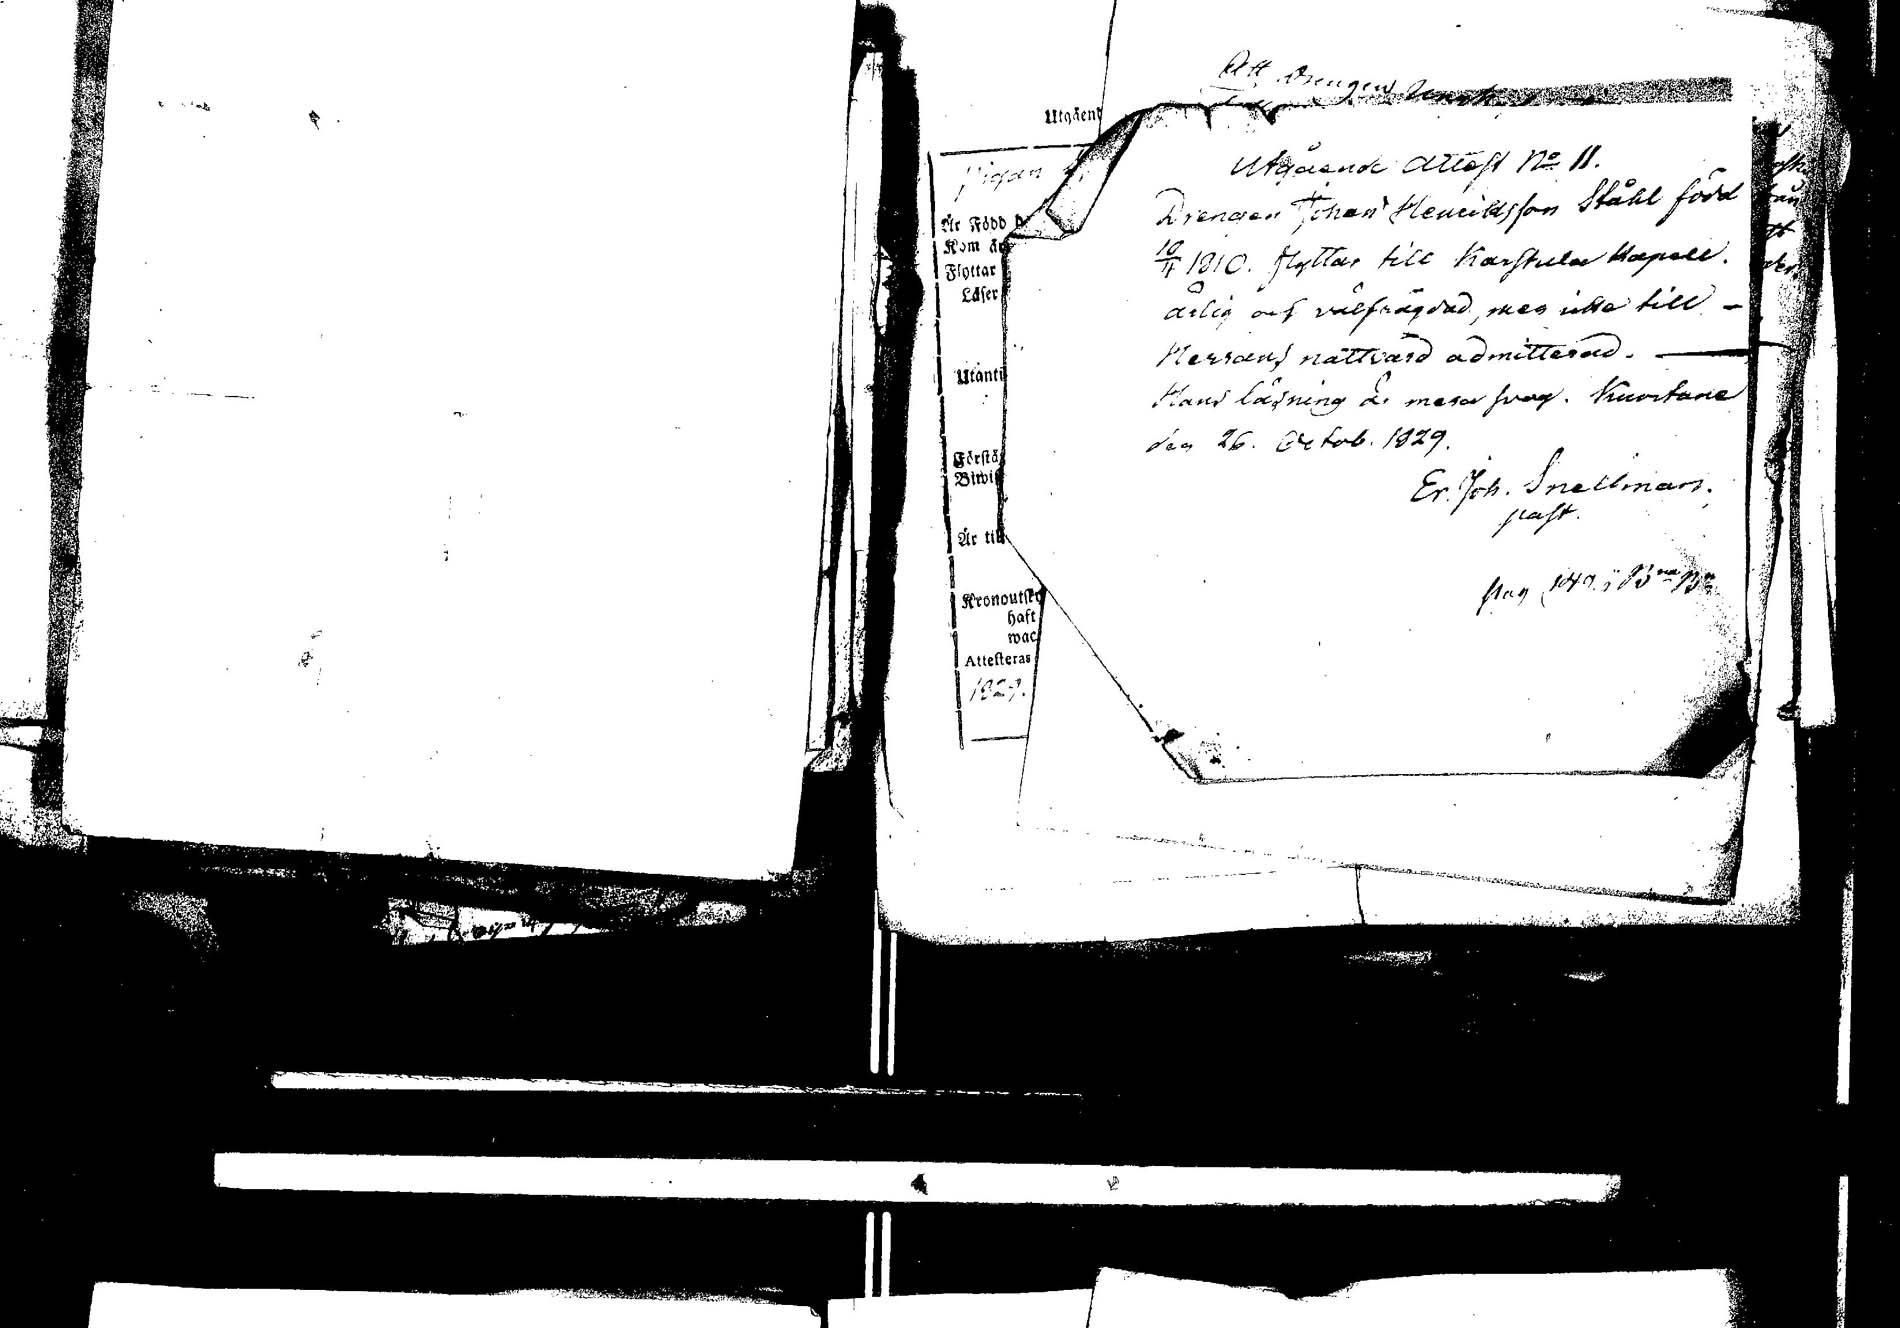 Att Drengen
Utgåend
Pigan
Är Född d
Kom år
Flyttar
Läser
Utanti
Förstå
Biwis
Är till
Kronoutsk
haft
wac
Attesteras
1829.
Utgående Attest No 11.
Drengen Johan Henriksson Ståhl född
10/4 1810. flyttar till Karstula Kapell.
ärlig och välfrägdad, men icke till –
Herrans nattvard admitterad. —
Hans läsning är mera svag. Kuortane
den 26. Octob. 1829.
Er. Joh. Snellman.
past.
pag 149.